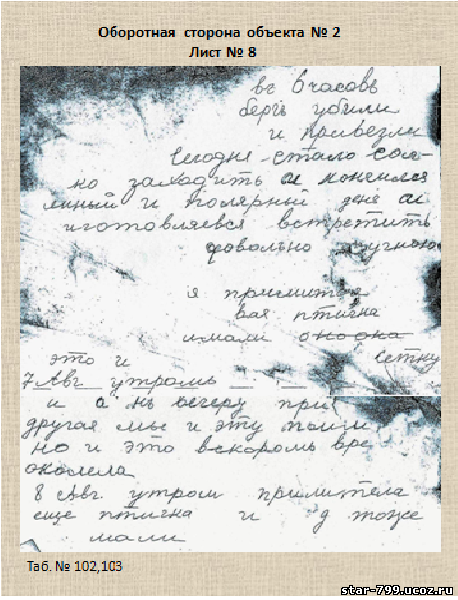 Оборотная сторона объекта № 2
Лист № 8
въ 6 часовъ
бергъ убили
и привезли
Сегодня стало сол-
но заходить и кончился
и полярный день и
изготовляемся встретить
довольно
я прилитѣла
вая птична
имали
это и сетку
7 Авг утромъ
и а къ вечеру при
другая мы и эту пойм
но и это вскоромъ вре
околела
8 Авг. утром прилитела
еще птична и д тоже
мали
Таб. № 102,103
star-799.ucoz.ru